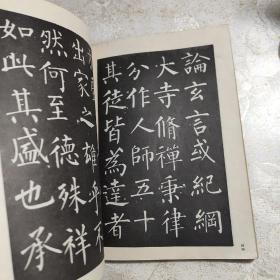 論玄言或紀綱
大寺脩禪秉律
分作人師五十
其徒皆為達者
出家之雄乎不
然何至德殊祥
如此其盛也承